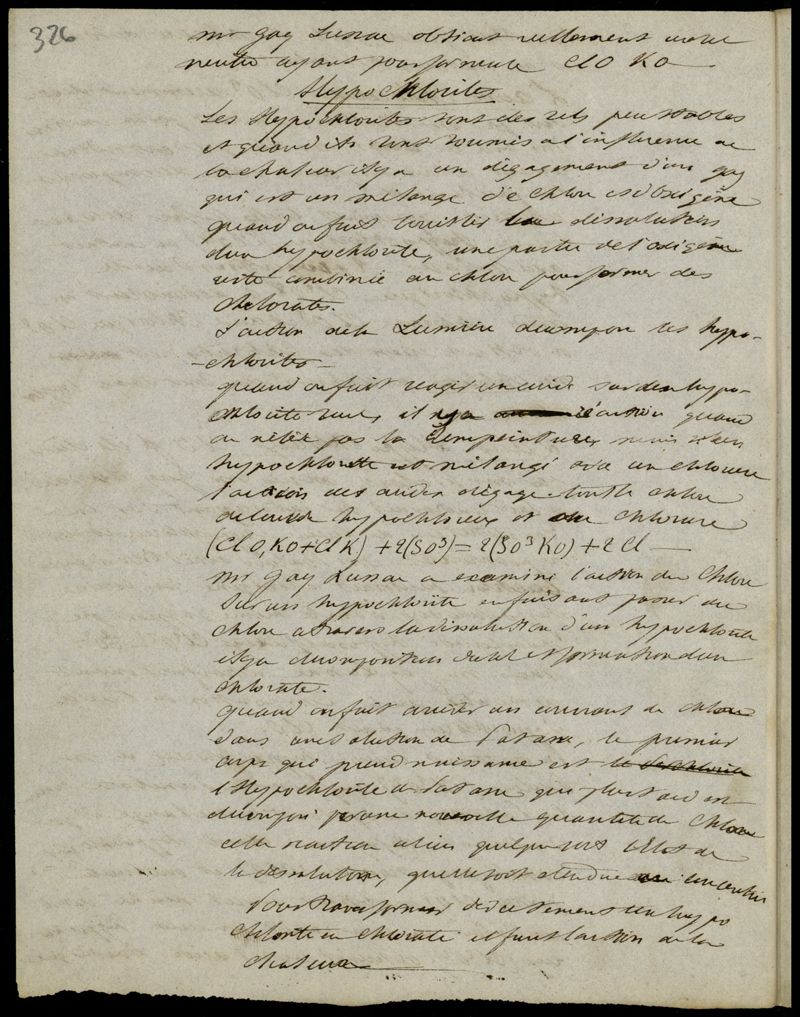 326
mr Gay Lussac obtient réellement un sel
neutre ayant pour formule ClO KO
Hypochlorites
Les Hypochlorites sont des sels peu stables
et quand ils sont soumis a l'influence de
la chaleur il y a un dégagement d'un gaz
qui est un mélange de chlore et d'oxigène
quand on fait bouillir la dissolution
d'un hypochlorite, une partie de l'oxigène
reste combinée au chlore pour former des
chlorates.
L'action de la Lumière décompose les hypo-
-chlorites
quand on fait reagir un acide sur un hypo-
chlorite seul, il n'y a l'action quand
on n'élève pas la température, mais si un
hypochlorite est mélangé avec un chlorure
l'action des acides dégage tout le chlore
de l'acide hypochloreux et du chlorure
(ClO,KO+ClK) + 2(SO³) = 2(SO³KO) + 2Cl —
mr Gay Lussac a examiné l'action du Chlore
sur un hypochlorite en faisant passer du
chlore a travers la dissolution d'un hypochlorite
il y a décomposition du sel et formation d'un
chlorate.
quand on fait arriver un courant de chlore
dans une solution de Potasse, le premier
corps qui prend naissance est
l'Hypochlorite de Potasse qui plus tard est
décomposé par une nouvelle quantité de Chlore
cette réaction a lieu quelque soit l'état de
la dissolution, quelle soit étendue ou concentrée
Pour transformer directement un hypo
chlorite en chlorate il faut l'action de la
chaleur